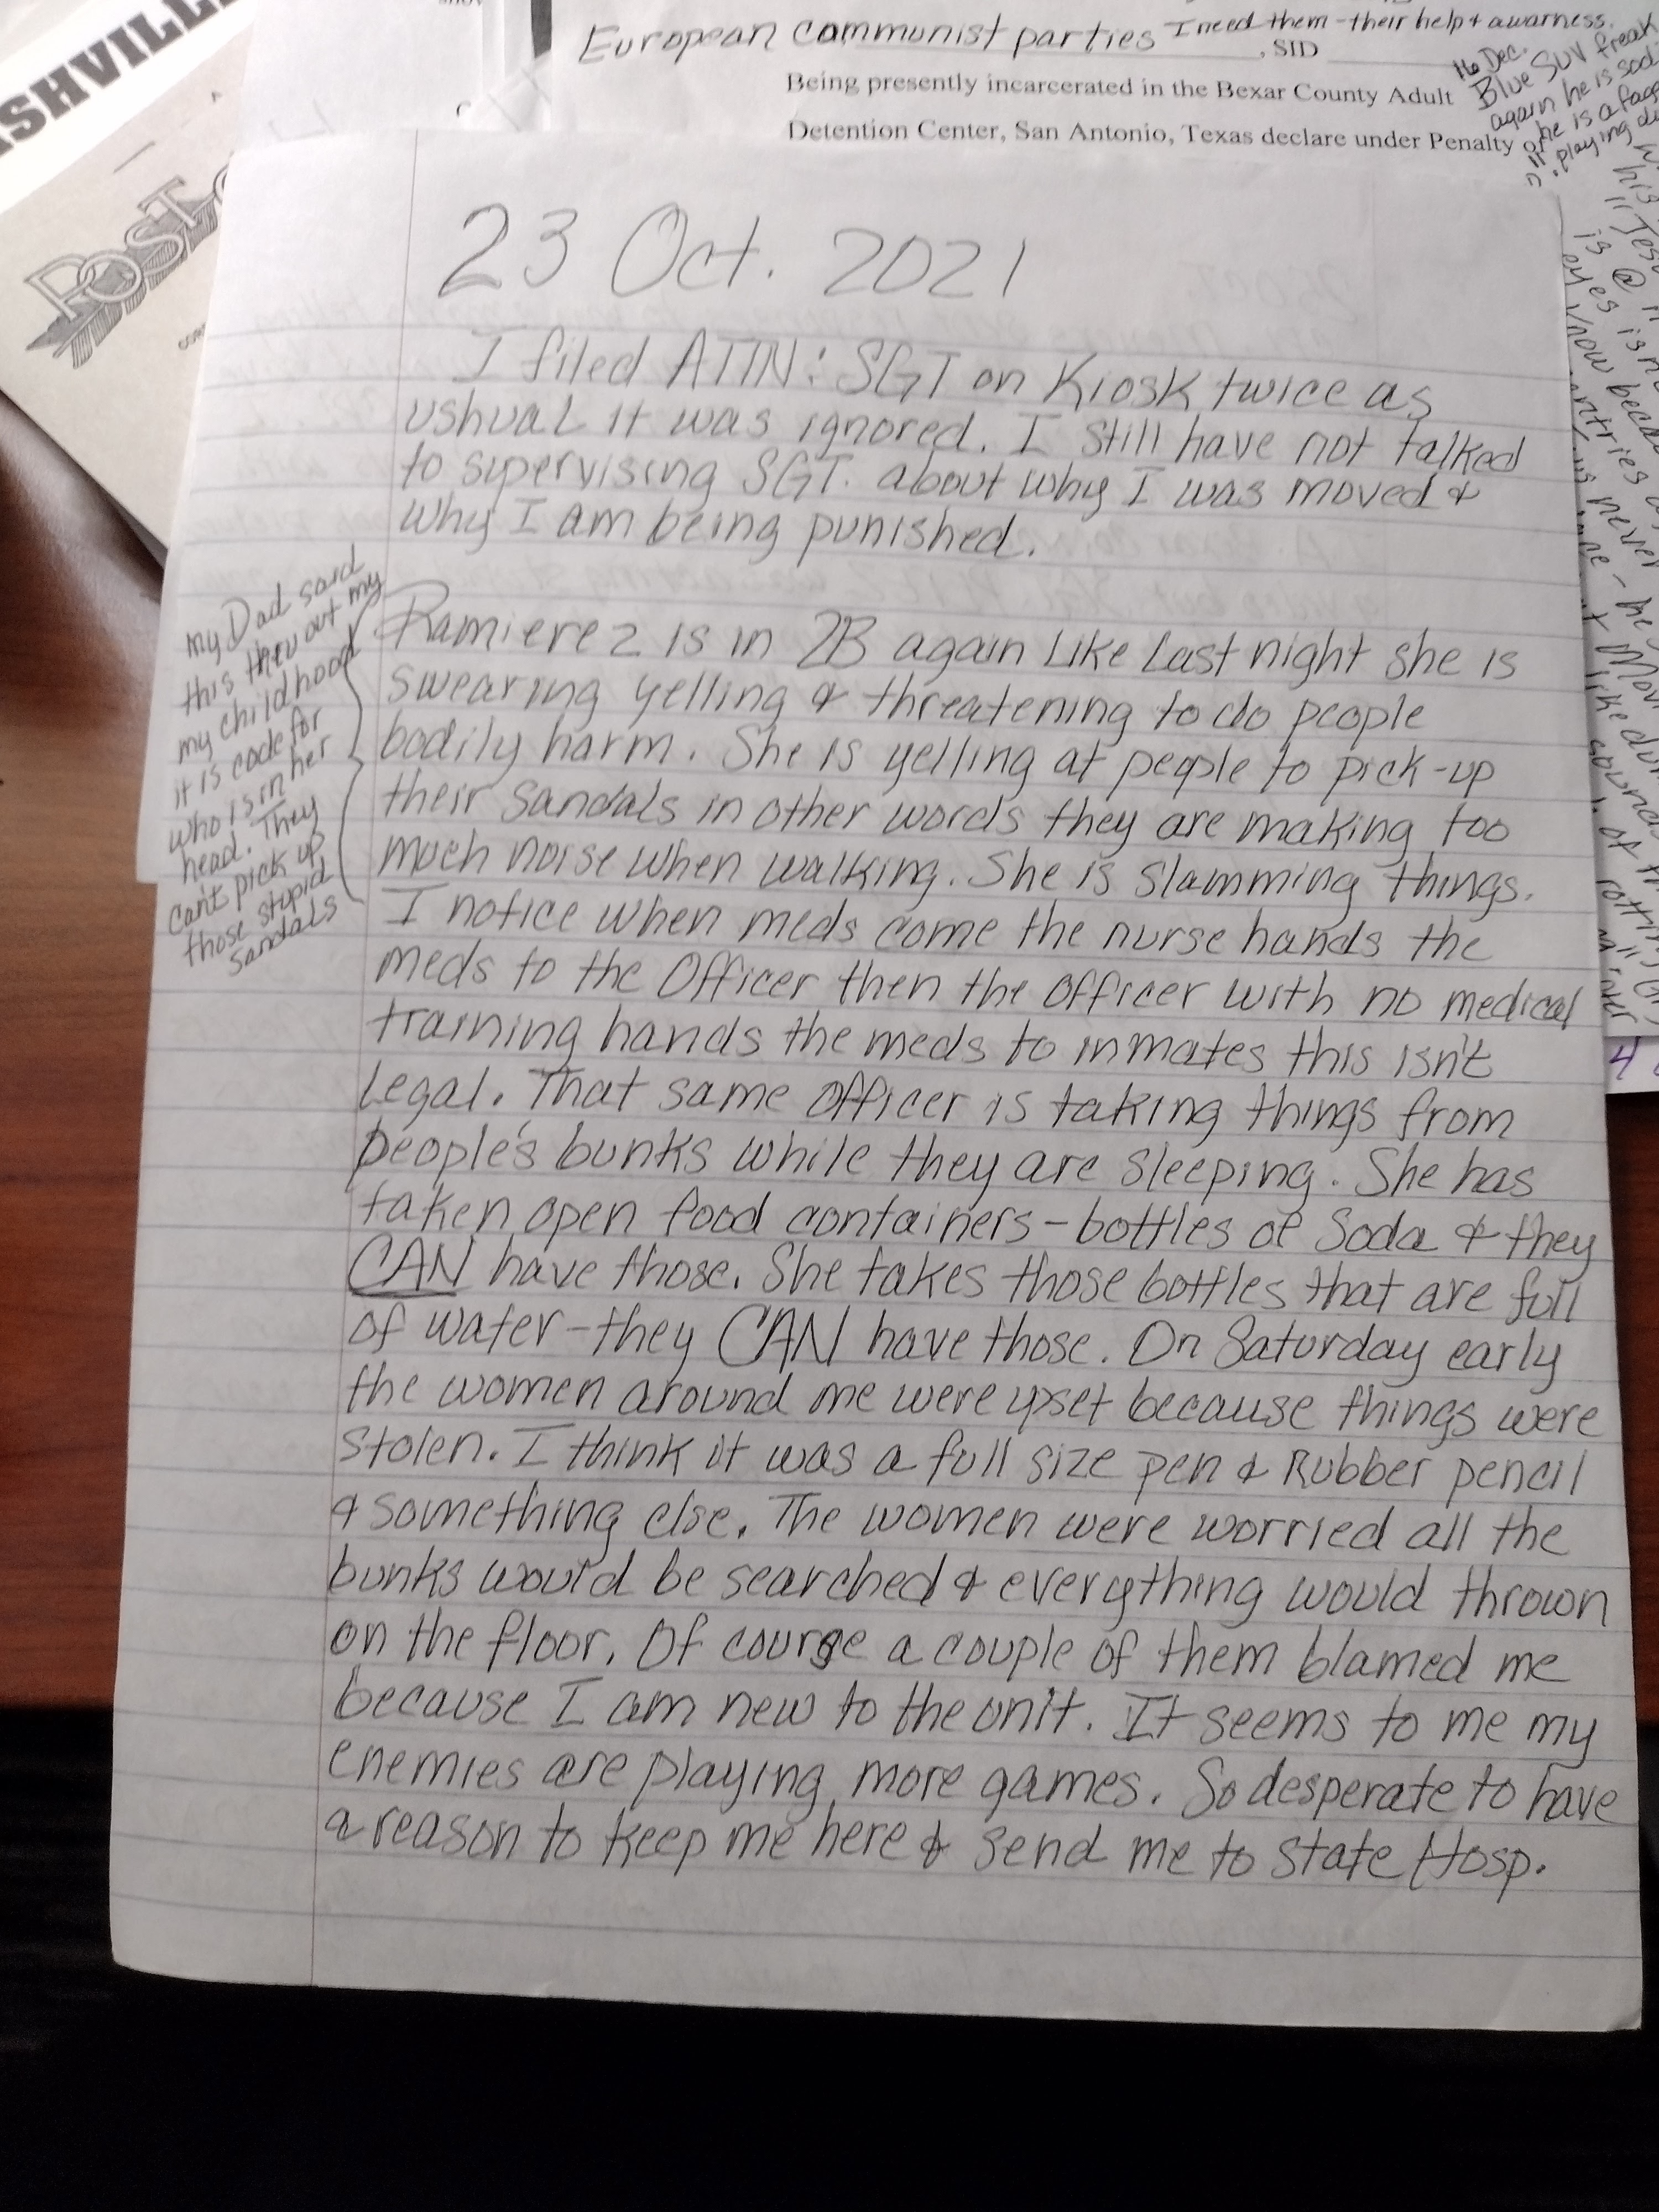 SHVILL
POST
European communist parties I need them - their help & awarness.
, SID
Being presently incarcerated in the Bexar County Adult
Detention Center, San Antonio, Texas declare under Penalty of
16 Dec.
Blue SUV freak
again he is
he is a
playing
23 Oct. 2021
I filed ATTN: SGT on Kiosk twice as
ushual it was ignored. I still have not talked
to supervising SGT. about why I was moved &
why I am being punished.
my Dad said
this thru out my
my childhood
it is code for
who is in her
head. They
can't pick up
those stupid
sandals
Ramierez is in 2B again like last night she is
swearing yelling & threatening to do people
bodily harm. She is yelling at people to pick-up
their sandals in other words they are making too
much noise when walking. She is slamming things.
I notice when meds come the nurse hands the
meds to the Officer then the officer with no medical
training hands the meds to inmates this isn't
legal. That same officer is taking things from
people's bunks while they are sleeping. She has
taken open food containers - bottles of soda & they
CAN have those. She takes those bottles that are full
of water - they CAN have those. On Saturday early
the women around me were upset because things were
stolen. I think it was a full size pen & Rubber pencil
& something else. The women were worried all the
bunks would be searched & everything would thrown
on the floor. Of course a couple of them blamed me
because I am new to the unit. It seems to me my
enemies are playing more games. So desperate to have
a reason to keep me here & send me to State Hosp.